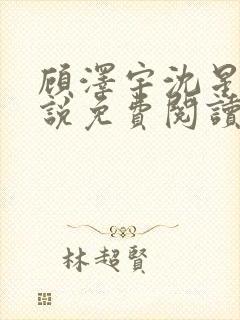 顾澤宇沈星
說免費閱讀
林超賢